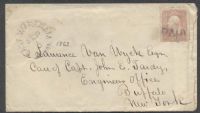 1863
PAID
Laurence Van Wyck Esq.
Care of Capt. John C. Tardy,
Engineers Office
Buffalo
New York